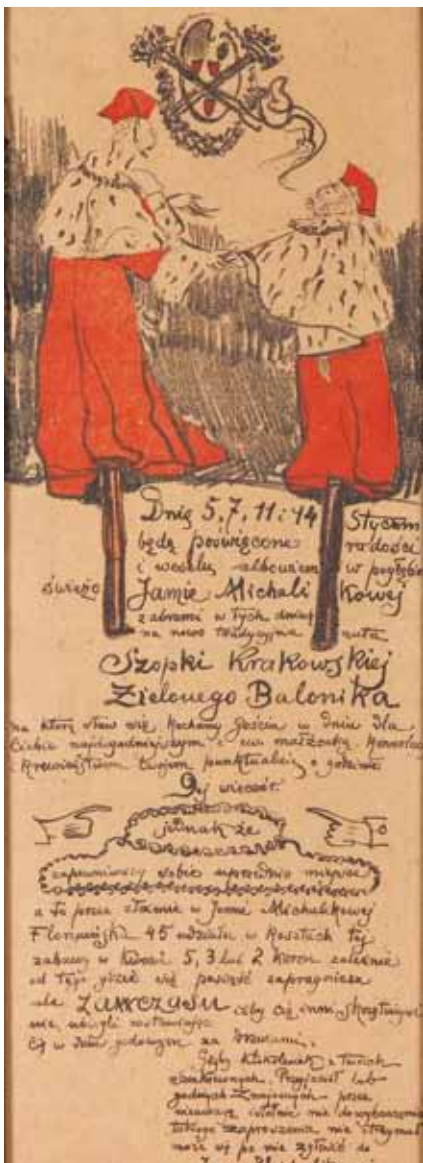 Dnie 5, 7, 11 i 14 Styczn
będą poświęcone radości
i weselu albowiem w pogłębie
świeżo Jamie Michali kowej
zabrzmi w tych dniach
na nowo tradycyjna nuta
Szopki Krakowskiej
Zielonego Balonika
na którą staw się Kochany Gościu w dniu dla
Ciebie najwygodniejszym z małżonką
i krewieństwem twojem punktualnie o godzinie
9ej wieczór.
jednak że
zapewniwszy sobie uprzednio miejsce
a to przez złożenie w Jamie Michalikowej
Floryańska 45 udziału w kosztach tej
zabawy w kwocie 5, 3 lub 2 koron zależnie
od tego gdzie się posiąść zapragniesz
ale ZAWCZASU aby cię inni
nie ubiegli
Cię w dniu godowym za drzwiami.
Gdyby ktokolwiek z
Przyjaciół lub
godnych Znajomych przez
nieuwagę
takiego zaproszenia nie otrzymał
może się po nie zgłosić do